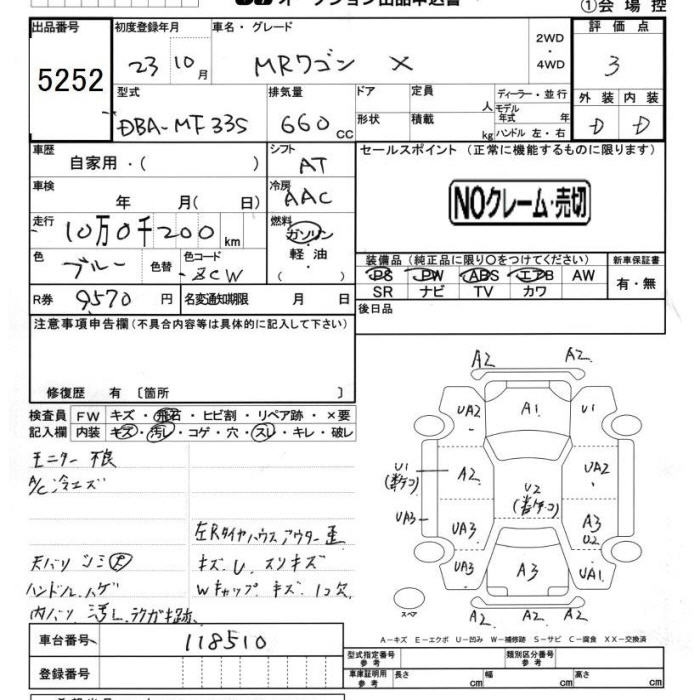 ①会場控
出品番号
5252
初度登録年月
23 10月
車名・グレード
MRワゴン X
2WD
・
4WD
評価点
3
型式
DBA-MF33S
排気量
660cc
ドア
形状
定員 人
積載 kg
ディーラー・並行
モデル年式 年
ハンドル 左・右
外装 内装
D D
車歴
自家用・( )
シフト
AT
セールスポイント (正常に機能するものに限ります)
NOクレーム・売切
車検
年 月( 日)
冷房
AAC
走行
10万0千200km
燃料
ガソリン
・
軽油
・
( )
色
ブルー
色替
色コード
ZCW
装備品 (純正品に限り○をつけてください)
PS PW ABS エアB AW
SR ナビ TV カワ
新車保証書
有・無
R券
9570円
名変通知期限 月 日
後日品
注意事項申告欄 (不具合内容等は具体的に記入して下さい)
修復歴 有 〔箇所 〕
検査員
記入欄
FW キズ・飛石・ヒビ割・リペア跡・×要
内装 キズ・汚レ・コゲ・穴・スレ・キレ・破レ
モニター不良
A/C冷エズ
左Rタイヤハウスアウター歪
天バリ シミ大
キズ、U、スリキズ
ハンドルハゲ
Wキャップキズ、1コ欠
内バリ汚レ、ラクガキ跡、
A2 A2
UA2 A1 U1
U1 A2 U2 UA2
UA3 UA3 A3
U2
UA3 A3 UA1
A2 A2 A2
スペア
A-キズ E-エクボ U-凹み W-補修跡 S-サビ C-腐食 XX-交換済
車台番号
118510
登録番号
型式指定番号
参考
類別区分番号
参考
車庫証明用
参考
長さ cm
幅 cm
高さ cm